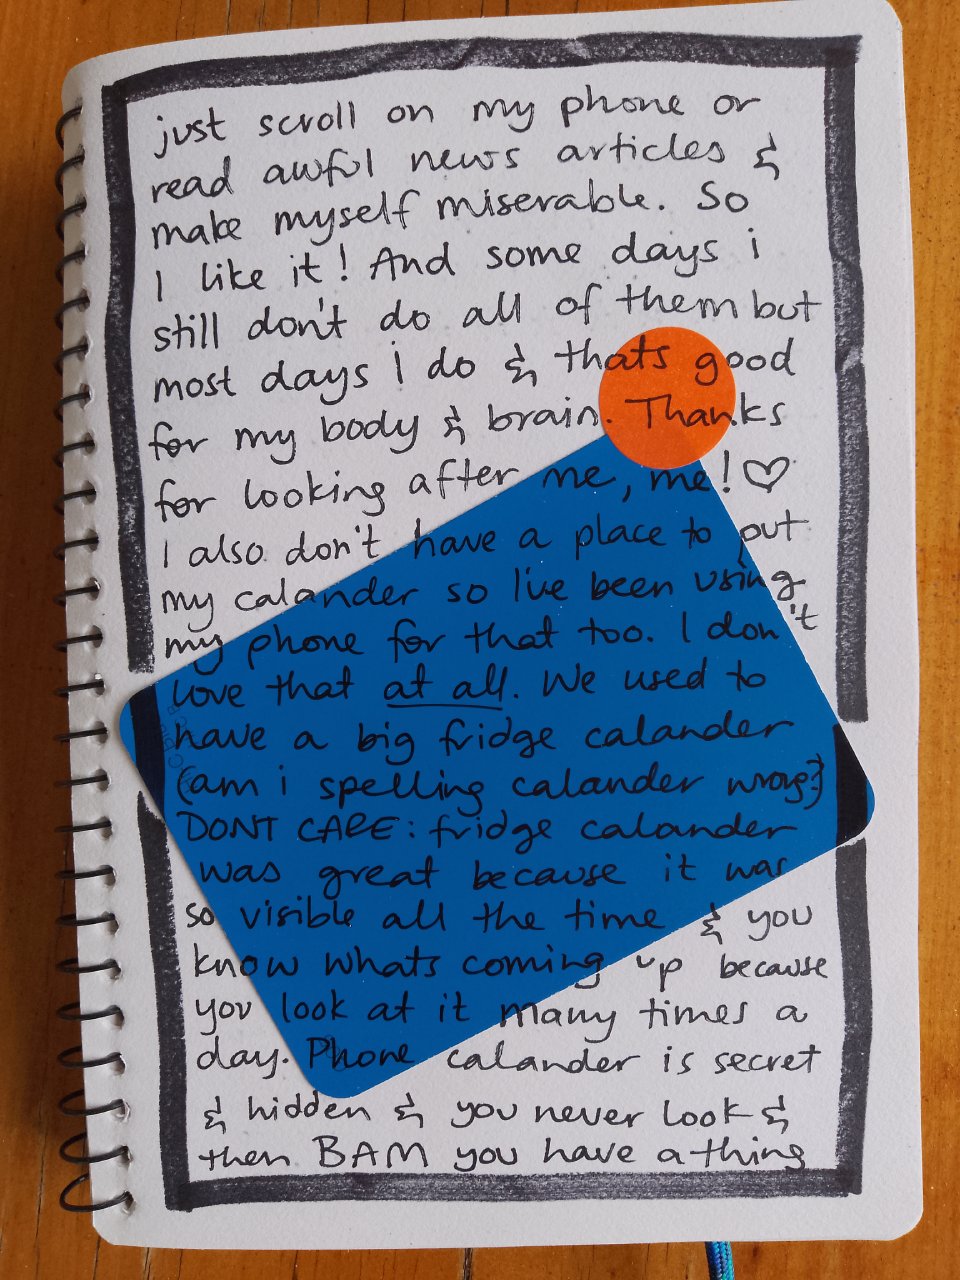 just scroll on my phone or
read awful news articles &
make myself miserable. So
I like it! And some days i
still don't do all of them but
most days I do & thats good
for my body & brain. Thanks
for looking after me, me! ♡
I also don't have a place to put
my calander so I've been using
my phone for that too. I don't
love that at all. We used to
have a big fridge calander
(am i spelling calander wrong?)
DONT CARE: fridge calander
was great because it was
so visible all the time & you
know whats coming up because
you look at it many times a
day. Phone calander is secret
& hidden & you never look &
then BAM you have a thing